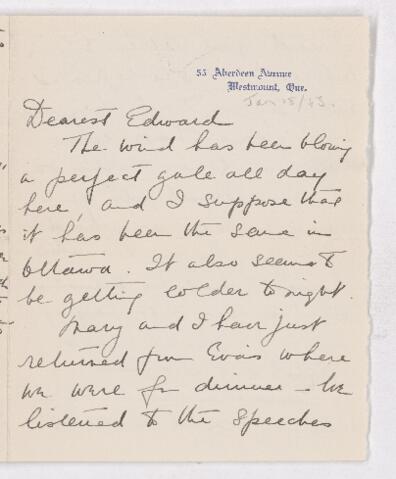 55 Aberdeen Avenue
Westmount, Que.
Dearest Edward
The wind has been blowing
a perfect gale all day
here, and I suppose that
it has been the same in
Ottawa. It also seems to
be getting colder tonight.
Mary and I have just
returned from Eva's where
we were for dinner - We
listened to the speeches